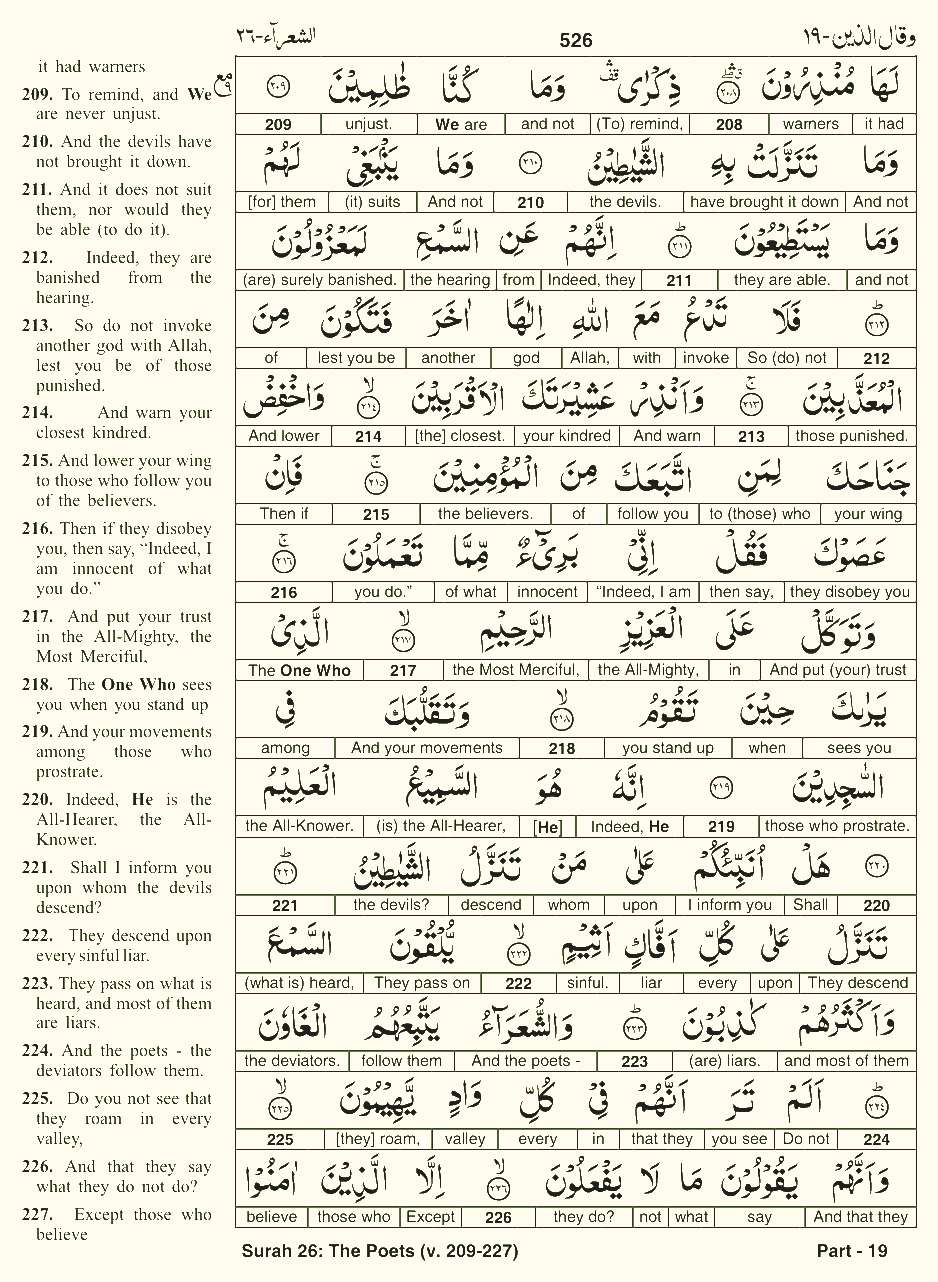 الشعرآء-٢٦
526
وقال الذين-١٩
it had warners
209. To remind, and We
are never unjust.
210. And the devils have
not brought it down.
211. And it does not suit
them, nor would they
be able (to do it).
212. Indeed, they are
banished from the
hearing.
213. So do not invoke
another god with Allah,
lest you be of those
punished.
214. And warn your
closest kindred.
215. And lower your wing
to those who follow you
of the believers.
216. Then if they disobey
you, then say, “Indeed, I
am innocent of what
you do.”
217. And put your trust
in the All-Mighty, the
Most Merciful,
218. The One Who sees
you when you stand up
219. And your movements
among those who
prostrate.
220. Indeed, He is the
All-Hearer, the All-
Knower.
221. Shall I inform you
upon whom the devils
descend?
222. They descend upon
every sinful liar.
223. They pass on what is
heard, and most of them
are liars.
224. And the poets - the
deviators follow them.
225. Do you not see that
they roam in every
valley,
226. And that they say
what they do not do?
227. Except those who
believe
لَهَا مُنْذِرُوْنَ ۛ ٢٠٨ ذِكْرٰى ۛ وَمَا كُنَّا ظٰلِمِيْنَ ٢٠٩
209 | unjust. | We are | and not | (To) remind, | 208 | warners | it had
وَمَا تَنَزَّلَتْ بِهِ الشَّيٰطِيْنُ ٢١٠ وَمَا يَنْۢبَغِيْ لَهُمْ
[for] them | (it) suits | And not | 210 | the devils. | have brought it down | And not
وَمَا يَسْتَطِيْعُوْنَ ٢١١ اِنَّهُمْ عَنِ السَّمْعِ لَمَعْزُوْلُوْنَ
(are) surely banished. | the hearing | from | Indeed, they | 211 | they are able. | and not
٢١٢ فَلَا تَدْعُ مَعَ اللّٰهِ اِلٰهًا اٰخَرَ فَتَكُوْنَ مِنَ
of | lest you be | another | god | Allah, | with | invoke | So (do) not | 212
الْمُعَذَّبِيْنَ ٢١٣ وَاَنْذِرْ عَشِيْرَتَكَ الْاَقْرَبِيْنَ ٢١٤ وَاخْفِضْ
And lower | 214 | [the] closest. | your kindred | And warn | 213 | those punished.
جَنَاحَكَ لِمَنِ اتَّبَعَكَ مِنَ الْمُؤْمِنِيْنَ ٢١٥ فَاِنْ
Then if | 215 | the believers. | of | follow you | to (those) who | your wing
عَصَوْكَ فَقُلْ اِنِّيْ بَرِيْٓءٌ مِّمَّا تَعْمَلُوْنَ ٢١٦
216 | you do.” | of what | innocent | “Indeed, I am | then say, | they disobey you
وَتَوَكَّلْ عَلَى الْعَزِيْزِ الرَّحِيْمِ ٢١٧ الَّذِيْ
The One Who | 217 | the Most Merciful, | the All-Mighty, | in | And put (your) trust
يَرٰىكَ حِيْنَ تَقُوْمُ ٢١٨ وَتَقَلُّبَكَ فِي
among | And your movements | 218 | you stand up | when | sees you
السّٰجِدِيْنَ ٢١٩ اِنَّهٗ هُوَ السَّمِيْعُ الْعَلِيْمُ
the All-Knower. | (is) the All-Hearer, | [He] | Indeed, He | 219 | those who prostrate.
٢٢٠ هَلْ اُنَبِّئُكُمْ عَلٰى مَنْ تَنَزَّلُ الشَّيٰطِيْنُ ٢٢١
221 | the devils? | descend | whom | upon | I inform you | Shall | 220
تَنَزَّلُ عَلٰى كُلِّ اَفَّاكٍ اَثِيْمٍ ٢٢٢ يُّلْقُوْنَ السَّمْعَ
(what is) heard, | They pass on | 222 | sinful. | liar | every | upon | They descend
وَاَكْثَرُهُمْ كٰذِبُوْنَ ٢٢٣ وَالشُّعَرَآءُ يَتَّبِعُهُمُ الْغَاوٗنَ
the deviators. | follow them | And the poets - | 223 | (are) liars. | and most of them
٢٢٤ اَلَمْ تَرَ اَنَّهُمْ فِيْ كُلِّ وَادٍ يَّهِيْمُوْنَ ٢٢٥
225 | [they] roam, | valley | every | in | that they | you see | Do not | 224
وَاَنَّهُمْ يَقُوْلُوْنَ مَا لَا يَفْعَلُوْنَ ٢٢٦ اِلَّا الَّذِيْنَ اٰمَنُوْا
believe | those who | Except | 226 | they do? | not | what | say | And that they
Surah 26: The Poets (v. 209-227)
Part - 19